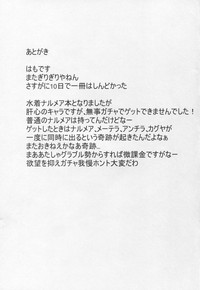 あとがき
はもです
またぎりぎりやねん
さすがに10日で一冊はしんどかった
水着ナルメア本となりましたが
肝心のキャラですが、無事ガチャでゲットできませんでした！
普通のナルメアは持ってんだけどなー
ゲットしたときはナルメア、メーテラ、アンチラ、カグヤが
一度に同時に出るという奇跡が起きたんだよなぁ
またおきねえかなあ奇跡..
まああたしゃグラブル勢からすれば微課金ですがなー
欲望を抑えガチャ我慢ホント大変だわ